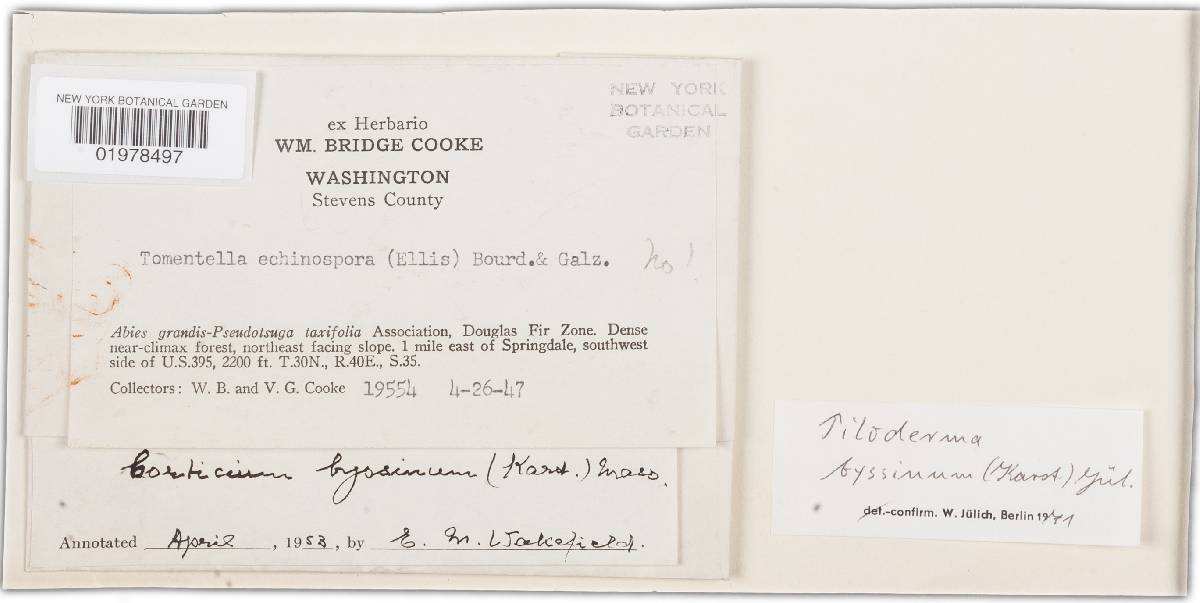 NEW YORK BOTANICAL GARDEN
01978497
NEW YORK
BOTANICAL
GARDEN
ex Herbario
WM. BRIDGE COOKE
WASHINGTON
Stevens County
Tomentella echinospora (Ellis) Bourd.& Galz. No!
Abies grandis-Pseudotsuga taxifolia Association, Douglas Fir Zone. Dense
near-climax forest, northeast facing slope. 1 mile east of Springdale, southwest
side of U.S.395, 2200 ft. T.30N., R.40E., S.35.
Collectors: W. B. and V. G. Cooke 19554 4-26-47
Corticium byssinum (Karst.) Mass.
Annotated April, 1953, by E. M. Wakefield.
Piloderma
byssinum (Karst) Jül.
det.-confirm. W. Jülich, Berlin 1971